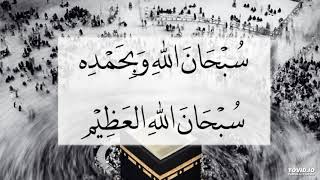 سُبْحَانَ اللهِ وَبِحَمْدِه
سُبْحَانَ اللهِ العَظِيْمِ
TOVID.IO